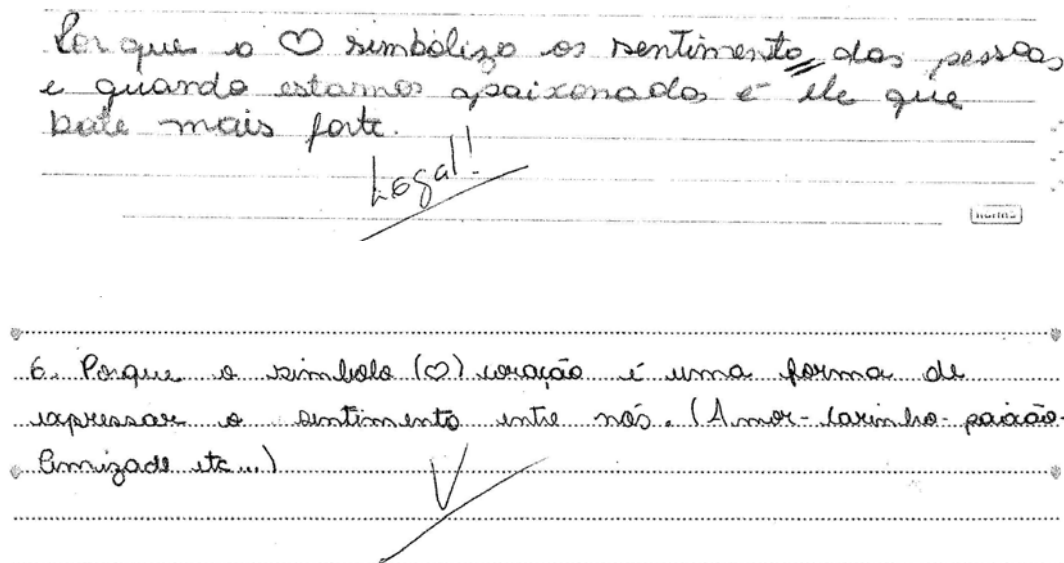 Por que o ♡ simboliza os sentimento das pessoas
e quando estamos apaixonados é ele que
bate mais forte.
Legal!
6. Porque o simbolo (♡) coração é uma forma de
expressar o sentimento entre nós. (Amor-carinho-paixão-
Amizade etc...)